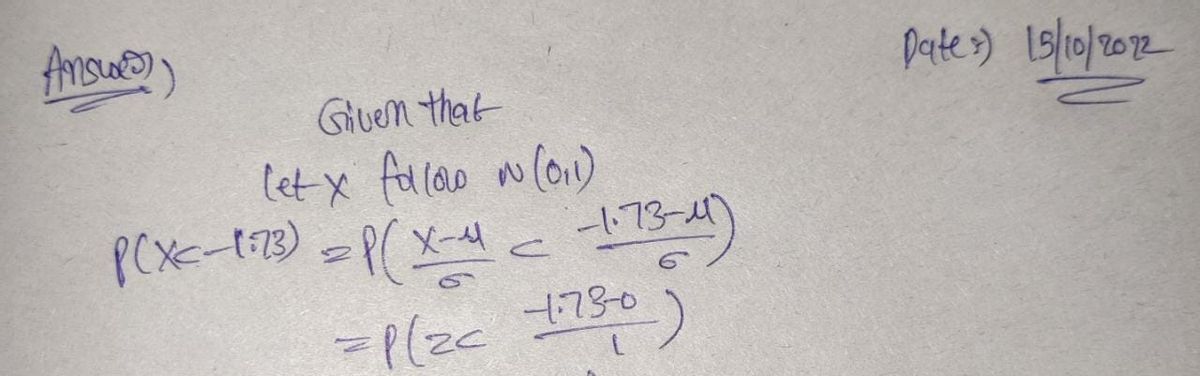 Answer,
Date:) 15/10/2022
Given that
let x follow N(0,1)
P(X<-1.73) = P( X-μ/σ < -1.73-μ/σ )
= P(z< -1.73-0/1 )